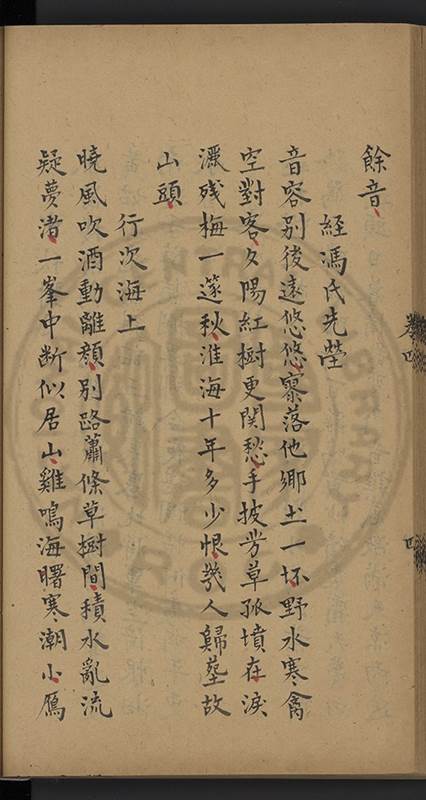 餘音
經馮氏先塋
音容別後遠悠悠寥落他鄉土一坏野水寒禽
空對客夕陽紅樹更関愁手披芳草孤墳在淚
灑残梅一篴秋淮海十年多少恨幾人歸塟故
山頭
行次海上
曉風吹酒動離顔別路蕭條草樹間積水亂流
疑夢渚一峯中断似居山雞鳴海曙寒潮小鴈
卷四
四